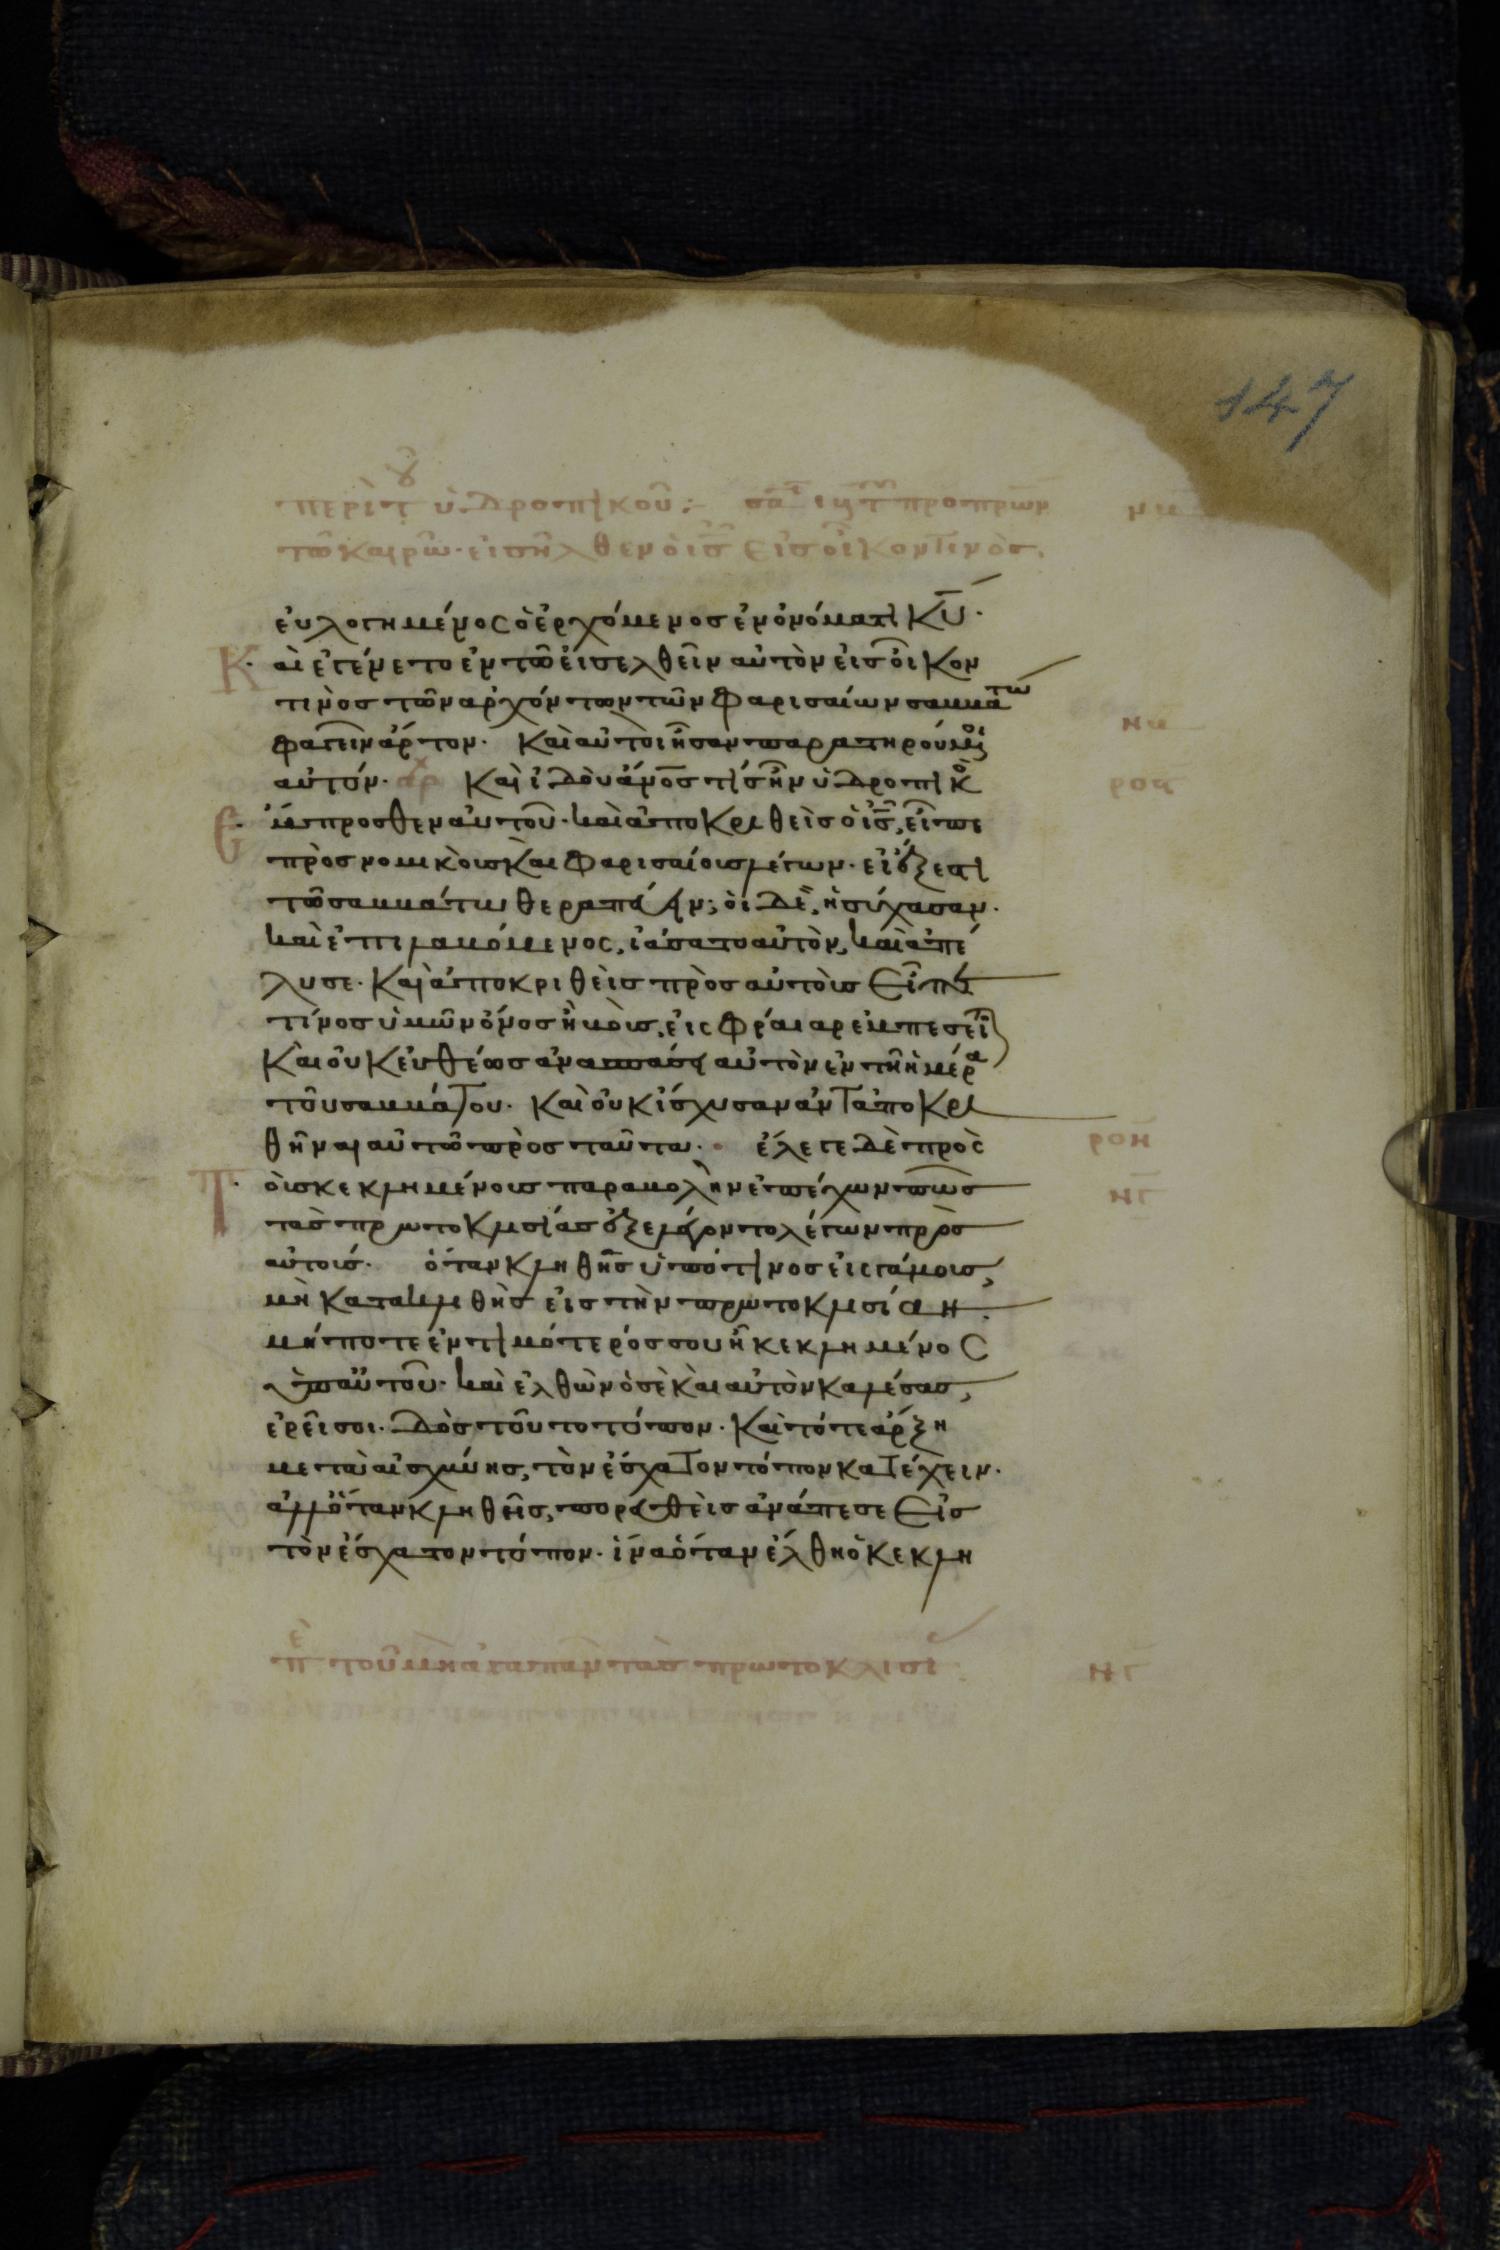 147
περὶ τ ὑδροπικοῦ
τῶ καιρῶ· εἰσῆλθεν ὁ ις εἰς οἶκον τινὸς
εὐλογημένος ὁ ἐρχόμενος ἐν ὀνόματι κυ·
Καὶ ἐγένετο ἐν τῶ εἰσελθεῖν αὐτὸν εἰς οἶκον
τινὸς τῶν ἀρχόντων τῶν φαρισαίων σαββάτω
φαγεῖν ἄρτον· καὶ αὐτοὶ ἦσαν παρατηρούμενοι
αὐτόν· αρχ καὶ ἰδοὺ ἄνος τίς ἦν ὑδροπικὸς
ἔμπροσθεν αὐτοῦ· καὶ ἀποκριθεὶς ὁ ις, εἶπε
πρὸς νομικοὺς καὶ φαρισαίους λέγων· εἰ ἔξεστι
τῶ σαββάτω θεραπεύειν; οἱ δὲ, ἡσύχασαν·
καὶ ἐπιλαβόμενος, ἰάσατο αὐτὸν, καὶ ἀπέ
λυσε· καὶ ἀποκριθεὶς πρὸς αὐτοὺς εἶπε
τίνος ὑμῶν ὄνος ἢ βοῦς, εἰς φρέαρ ἐμπεσεῖται
καὶ οὐκ εὐθέως ἀνασπάσει αὐτὸν ἐν τῆ ἡμέρα
τοῦ σαββάτου· καὶ οὐκ ἴσχυσαν ἀνταποκρι
θῆναι αὐτῶ πρὸς ταῦτα· ἔλεγε δὲ πρὸς
τοὺς κεκλημένους παραβολὴν ἐπέχων πῶς
τὰς πρωτοκλισίας ἐξελέγοντο λέγων πρὸς
αὐτούς· ὅταν κληθῆς ὑπό τινος εἰς γάμους,
μὴ κατακλιθῆς εἰς τὴν πρωτοκλισίαν·
μήποτε ἐντιμότερός σου ἦ κεκλημένος
ὑπ αὐτοῦ· καὶ ἐλθὼν ὁ σὲ καὶ αὐτὸν καλέσας,
ἐρεῖ σοι· δὸς τούτο τόπον· καὶ τότε ἄρξη
μετὰ αἰσχύνης, τὸν ἔσχατον τόπον κατέχειν·
ἀλλ ὅταν κληθῆς, πορευθεὶς ἀνάπεσε εἰς
τὸν ἔσχατον τόπον· ἵνα ὅταν ἔλθη ὁ κεκλη
τοῦ μὴ ἀγαπᾶν τὰς πρωτοκλισί